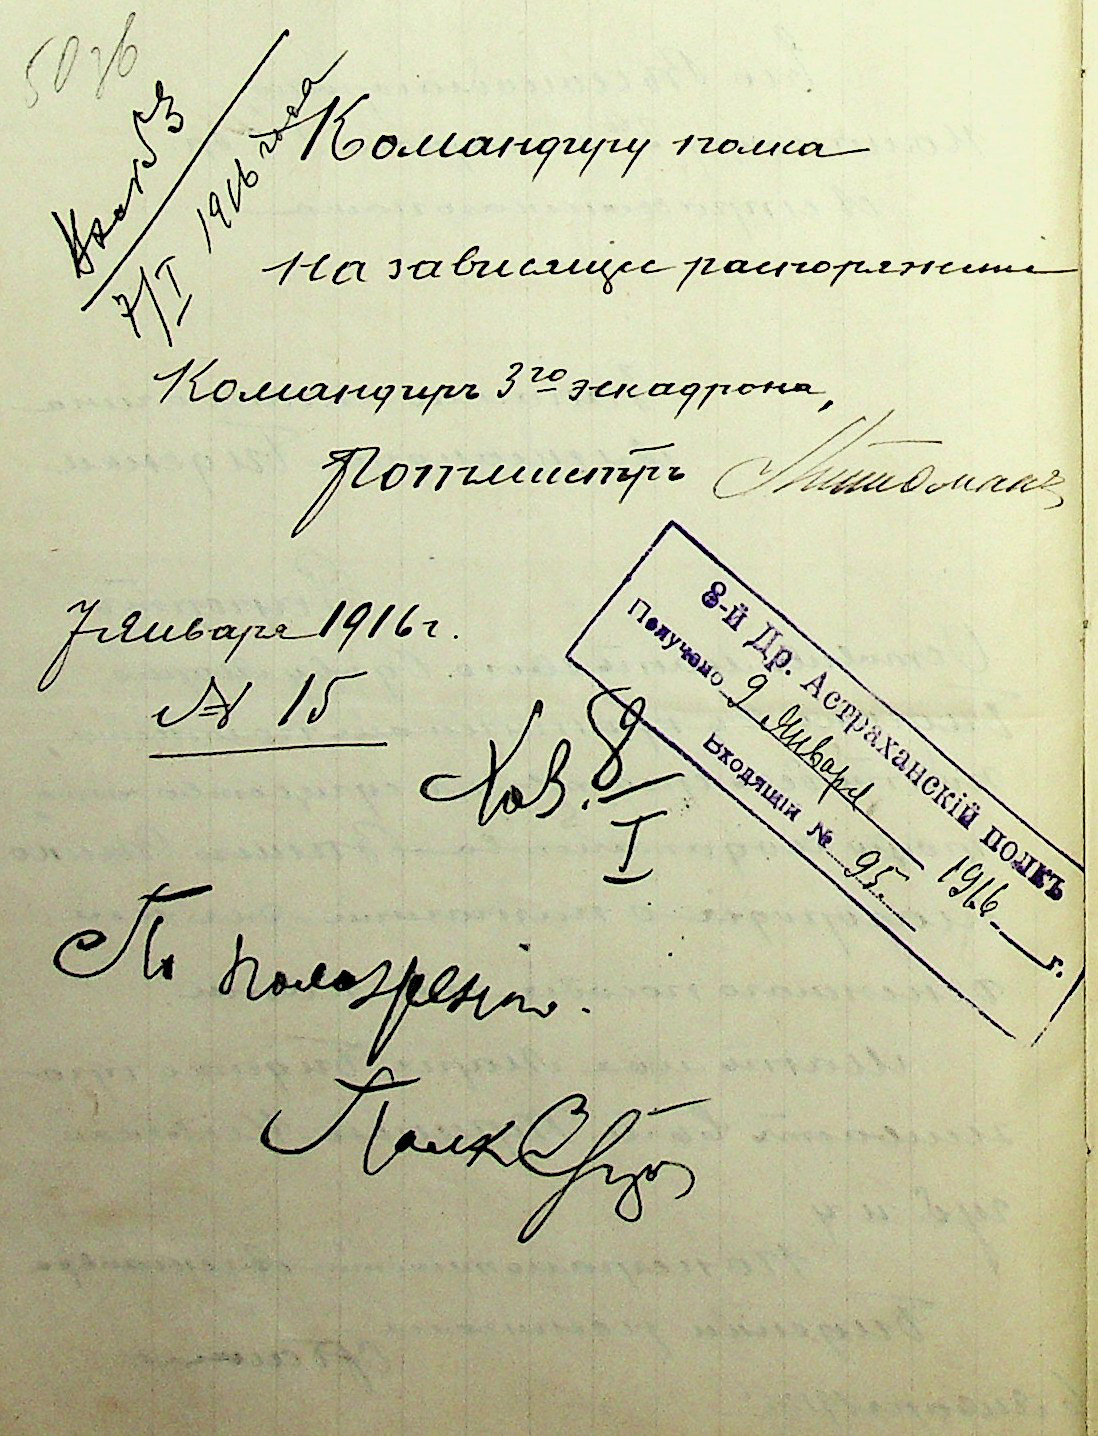 50 об
Вход № 3
7/I 1916 года
Командиру полка
На зависящее распоряжение
Командиръ 3го эскадрона,
Ротмистръ
7 Января 1916 г.
№ 15
8/I
8-й Др. Астраханскій полкъ
Получено 9 Января 1916 г.
Входящій № 95.
Полк